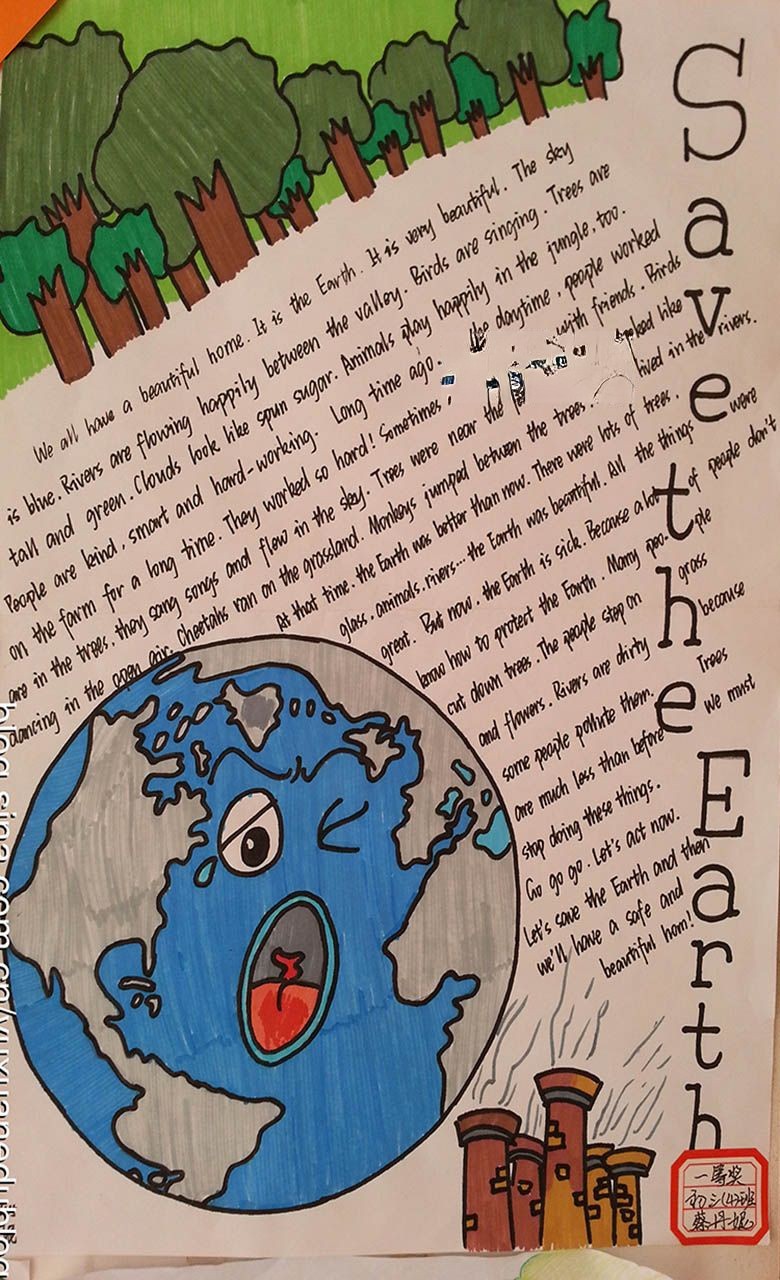 Save the Earth
We all have a beautiful home. It is the Earth. It is very beautiful. The sky
is blue. Rivers are flowing happily between the valley. Birds are singing. Trees are
tall and green. Clouds look like spun sugar. Animals play happily in the jungle, too.
People are kind, smart and hard-working. Long time ago. the daytime, people worked
on the farm for a long time. They worked so hard! Sometimes, with friends. Birds
are in the trees, they sang songs and flew in the sky. Trees were near the looked like
dancing in the open air. Cheetahs ran on the grassland. Monkeys jumped between the trees. lived in the rivers.
At that time, the Earth was better than now. There were lots of trees.
glass, animals, rivers... the Earth was beautiful. All the things were
great. But now, the Earth is sick. Because a lot of people don't
know how to protect the Earth. Many peo-ple
cut down trees. The people step on grass
and flowers. Rivers are dirty because
some people pollute them. Trees
are much less than before We must
stop doing these things.
Go go go. Let's act now.
Let's save the Earth and then
we'll have a safe and
beautiful hom!
一等奖
初三(4)班
蔡丹妮